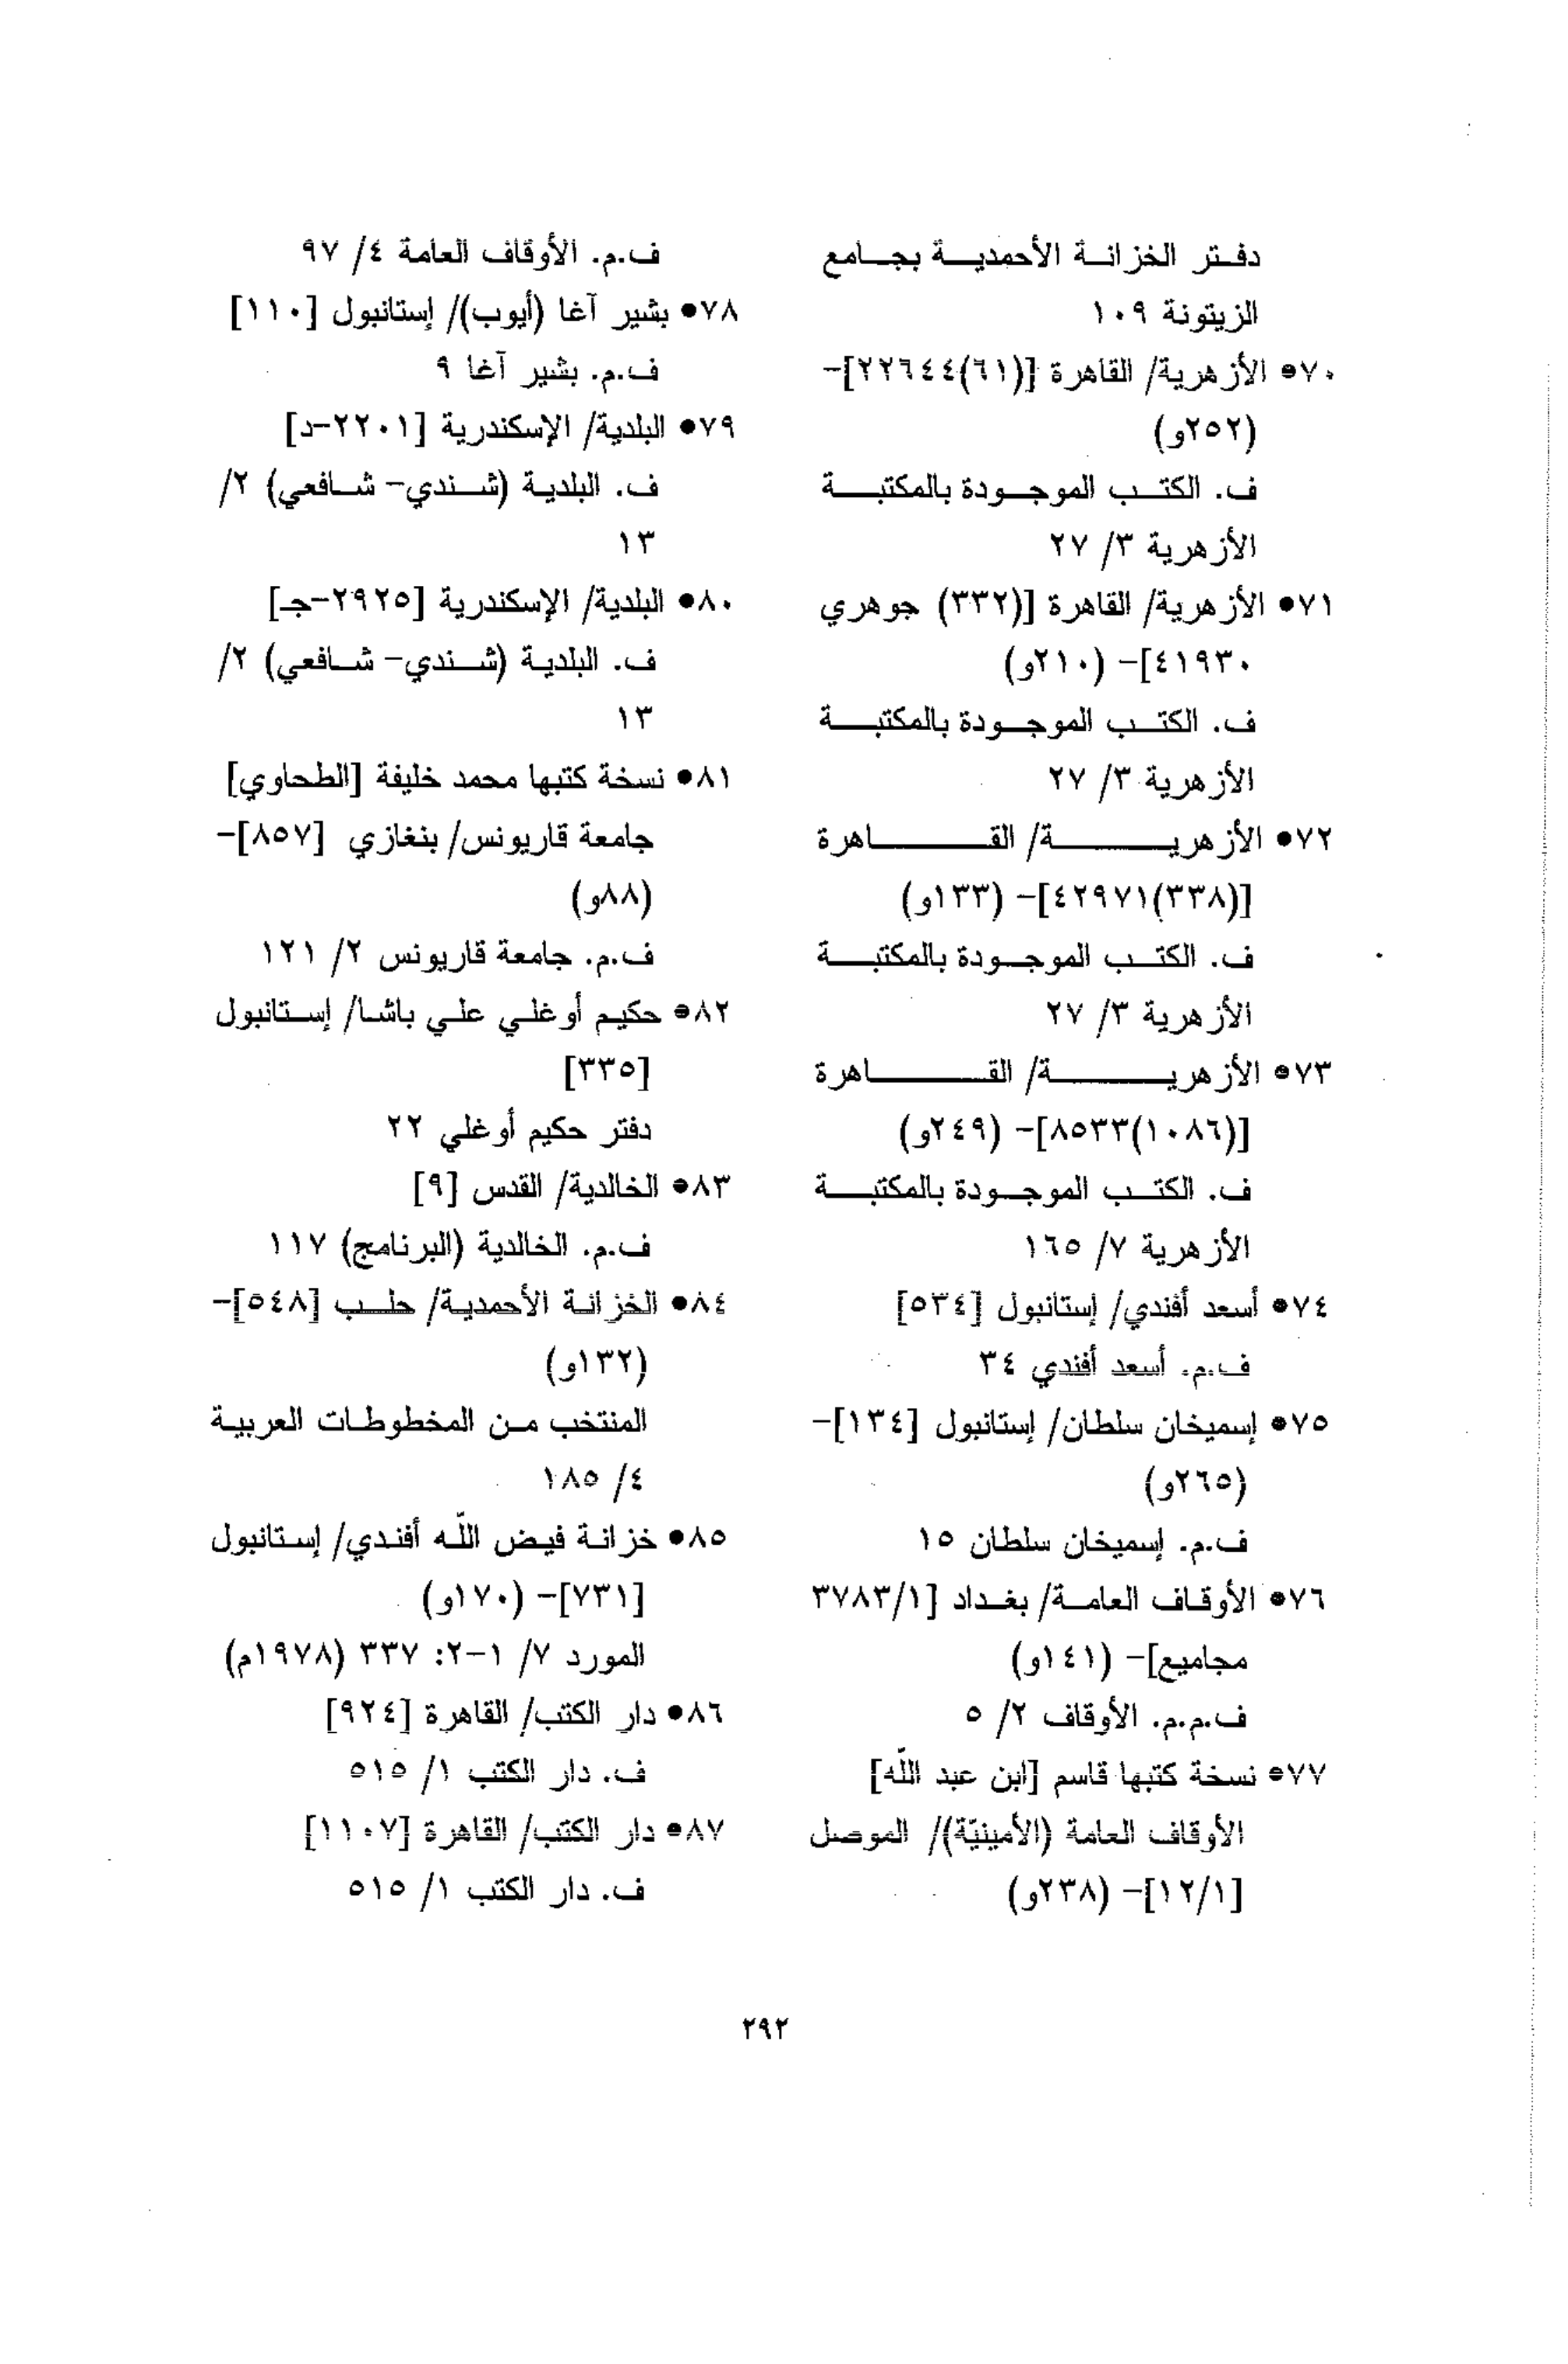 دفتر الخزانة الأحمدية بجامع
الزيتونة ١٠٩
٧٠● الأزهرية/ القاهرة [(٦١)٢٢٦٤٤]-
(٢٥٢و)
ف. الكتب الموجودة بالمكتبة
الأزهرية ٣/ ٢٧
٧١● الأزهرية/ القاهرة [(٣٣٢) جوهري
٤١٩٣٠]- (٢١٠و)
ف. الكتب الموجودة بالمكتبة
الأزهرية ٣/ ٢٧
٧٢● الأزهرية/ القاهرة
[(٣٣٨)٤٢٩٧١]- (١٣٣و)
ف. الكتب الموجودة بالمكتبة
الأزهرية ٣/ ٢٧
٧٣● الأزهرية/ القاهرة
[(١٠٨٦)٨٥٣٣]- (٢٤٩و)
ف. الكتب الموجودة بالمكتبة
الأزهرية ٧/ ١٦٥
٧٤● أسعد أفندي/ إستانبول [٥٣٤]
ف.م. أسعد أفندي ٣٤
٧٥● إسميخان سلطان/ إستانبول [١٣٤]-
(٢٦٥و)
ف.م. إسميخان سلطان ١٥
٧٦● الأوقاف العامة/ بغداد [٣٧٨٣/١
مجاميع]- (١٤١و)
ف.م.م. الأوقاف ٢/ ٥
٧٧● نسخة كتبها قاسم [ابن عبد اللّه]
الأوقاف العامة (الأمينيّة)/ الموصل
[١٢/١]- (٢٣٨و)
ف.م. الأوقاف العامة ٤/ ٩٧
٧٨● بشير آغا (أيوب)/ إستانبول [١١٠]
ف.م. بشير آغا ٩
٧٩● البلدية/ الإسكندرية [٢٢٠١-د]
ف. البلدية (شندي- شافعي) ٢/
١٣
٨٠● البلدية/ الإسكندرية [٢٩٢٥-جـ]
ف. البلدية (شندي- شافعي) ٢/
١٣
٨١● نسخة كتبها محمد خليفة [الطحاوي]
جامعة قاريونس/ بنغازي [٨٥٧]-
(٨٨و)
ف.م. جامعة قاريونس ٢/ ١٢١
٨٢● حكيم أوغلي علي باشا/ إستانبول
[٣٣٥]
دفتر حكيم أوغلي ٢٢
٨٣● الخالدية/ القدس [٩]
ف.م. الخالدية (البرنامج) ١١٧
٨٤● الخزانة الأحمدية/ حلب [٥٤٨]-
(١٣٢و)
المنتخب من المخطوطات العربية
٤/ ١٨٥
٨٥● خزانة فيض اللّه أفندي/ إستانبول
[٧٣١]- (١٧٠و)
المورد ٧/ ١-٢: ٣٣٧ (١٩٧٨م)
٨٦● دار الكتب/ القاهرة [٩٢٤]
ف. دار الكتب ١/ ٥١٥
٨٧● دار الكتب/ القاهرة [١١٠٧]
ف. دار الكتب ١/ ٥١٥
٢٩٢